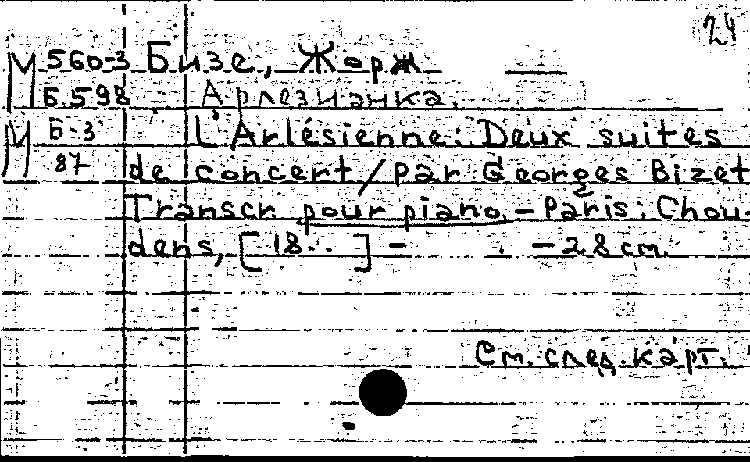 24
М 560-3 Бизе, Жорж
Б.598 Арлезианка.
М Б-3 L'Arlésienne: Deux suites
87 de concert / par Georges Bizet
Transcr. pour piano. – Paris: Chou-
dens, [18.. ] – . – 28 cm.
См. след. карт.